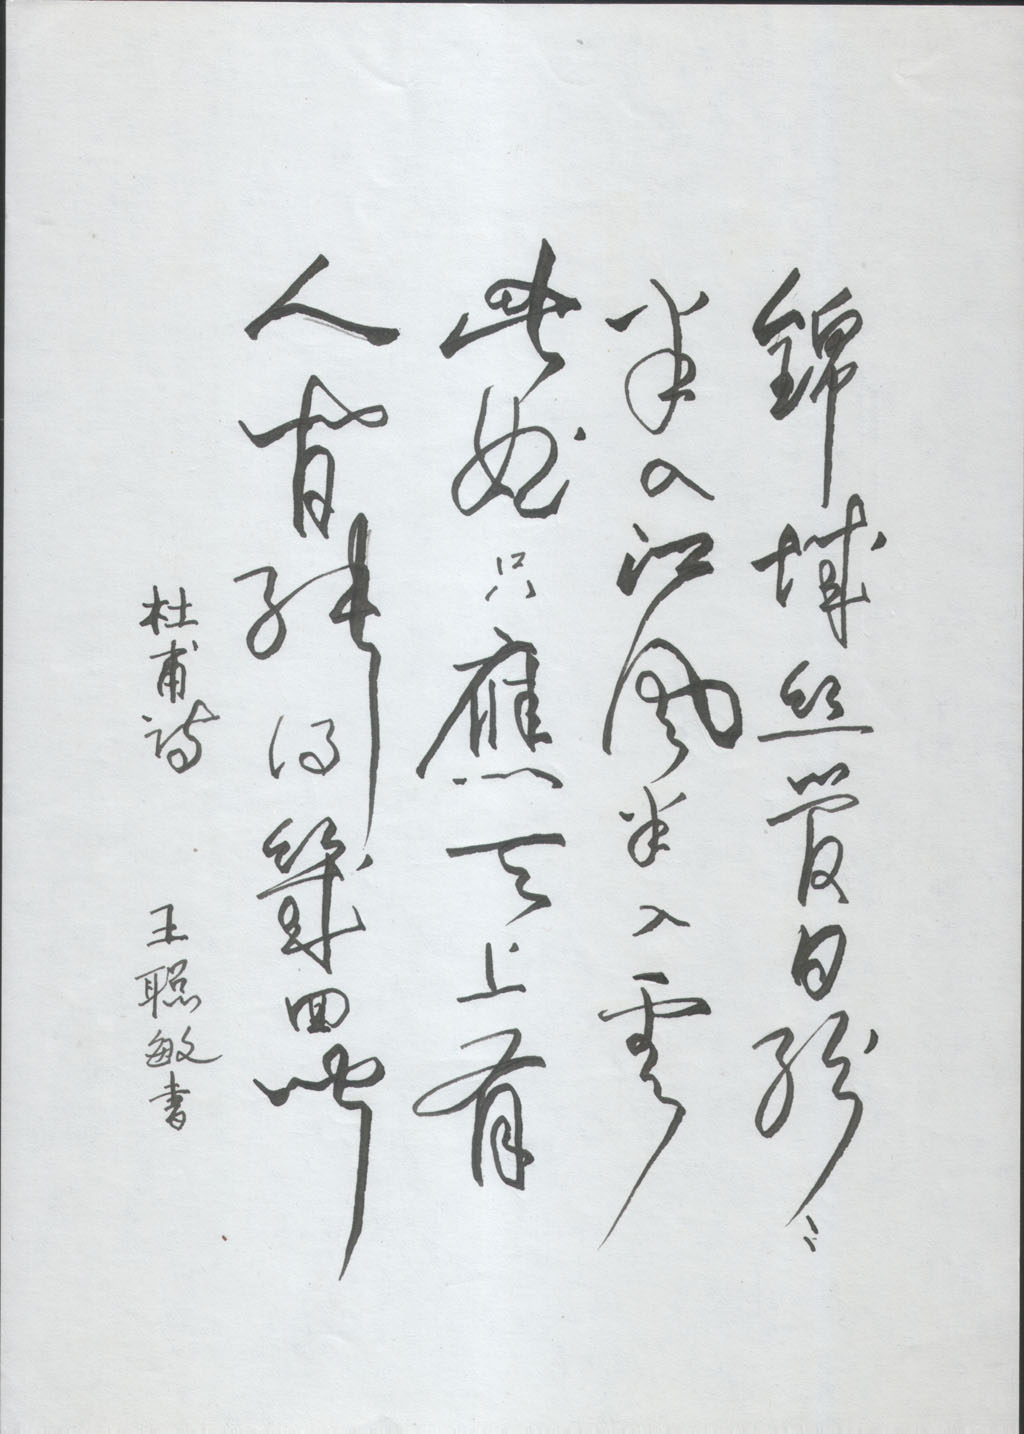 錦城丝管日紛〻
半入江風半入雲
此曲只應天上有
人間能得幾回聞
杜甫詩 王聰敏書